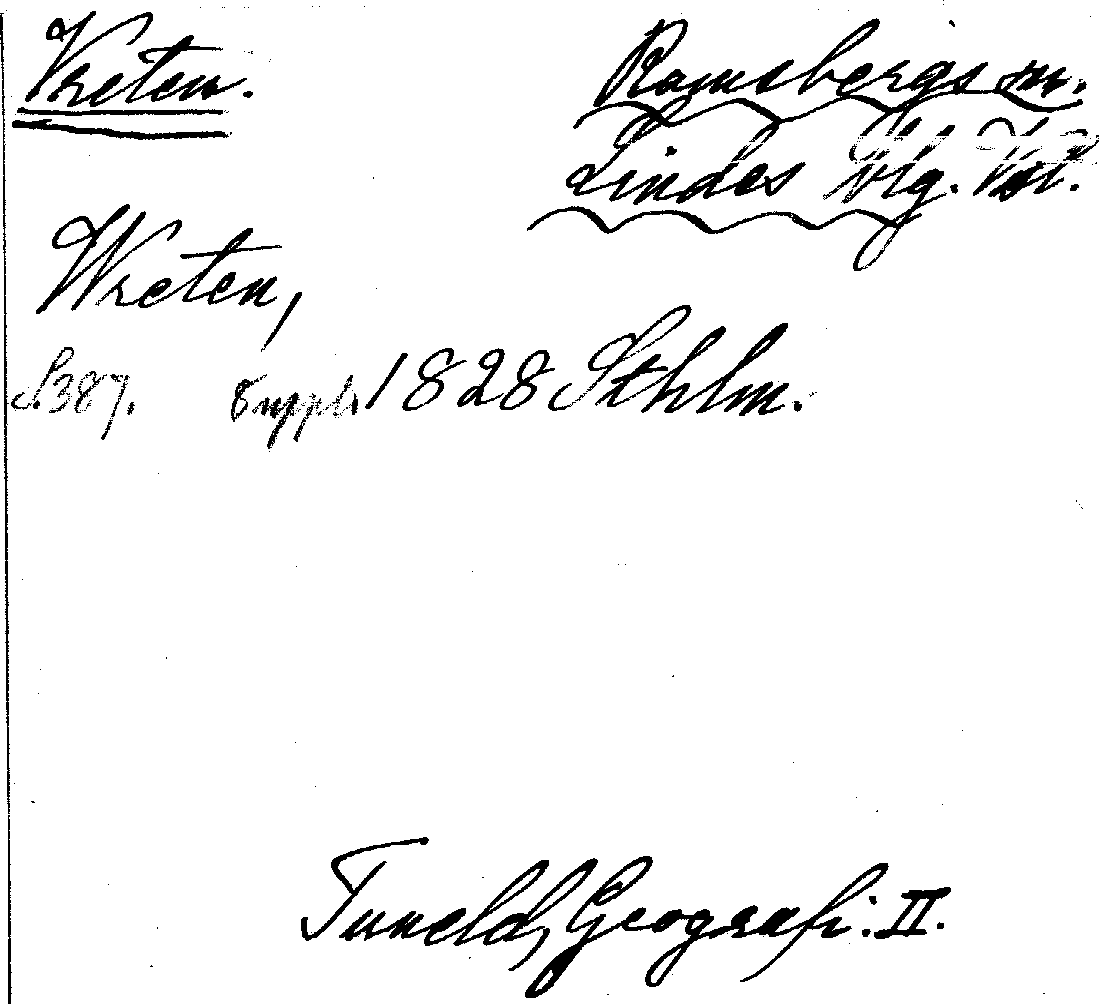 Vreten.
Ramsbergs sn.
Lindes blg. Vstl.
Wreten,
S.387. Suppl. 1828 Sthlm.
Tuneld, Geografi. II.